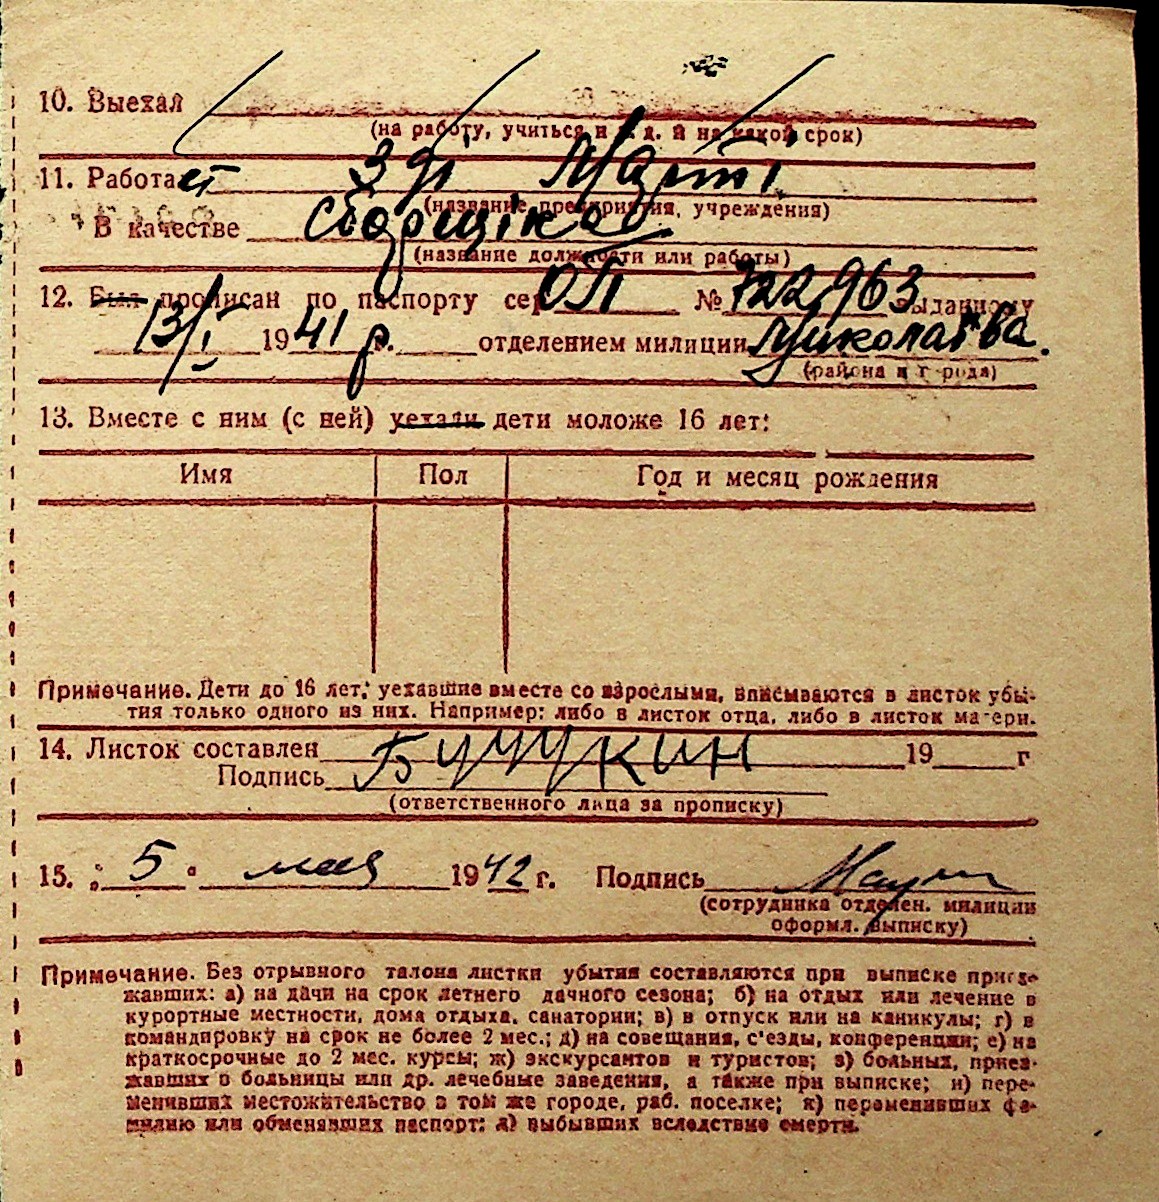 10. Выехал
(на работу, учиться и т. д. и на какой срок)
11. Работает З-ді Марті
(название предприятия, учреждения)
В качестве сборщіка
(название должности или работы)
12. Был прописан по паспорту сер. ОП № 722963 выданному
13/I 1941 р. отделением милиции Миколаєва.
(района и города)
13. Вместе с ним (с ней) уехали дети моложе 16 лет:
Имя Пол Год и месяц рождения
Примечание. Дети до 16 лет, уехавшие вместе со взрослыми, вписываются в листок убы-
тия только одного из них. Например: либо в листок отца, либо в листок матери.
14. Листок составлен 19 г
Подпись
(ответственного лица за прописку)
15. „ 5 " мая 1942 г. Подпись
(сотрудника отделен. милиции
оформл. выписку)
Примечание. Без отрывного талона листки убытия составляются при выписке приез-
жавших: а) на дачи на срок летнего дачного сезона; б) на отдых или лечение в
курортные местности, дома отдыха, санатории; в) в отпуск или на каникулы; г) в
командировку на срок не более 2 мес.; д) на совещания, с'езды, конференции; е) на
краткосрочные до 2 мес. курсы; ж) экскурсантов и туристов; з) больных, приез-
жавших в больницы или др. лечебные заведения, а также при выписке; и) пере-
менивших местожительство в том же городе, раб. поселке; к) переменивших фа-
милию или обменявших паспорт; л) выбывших вследствие смерти.